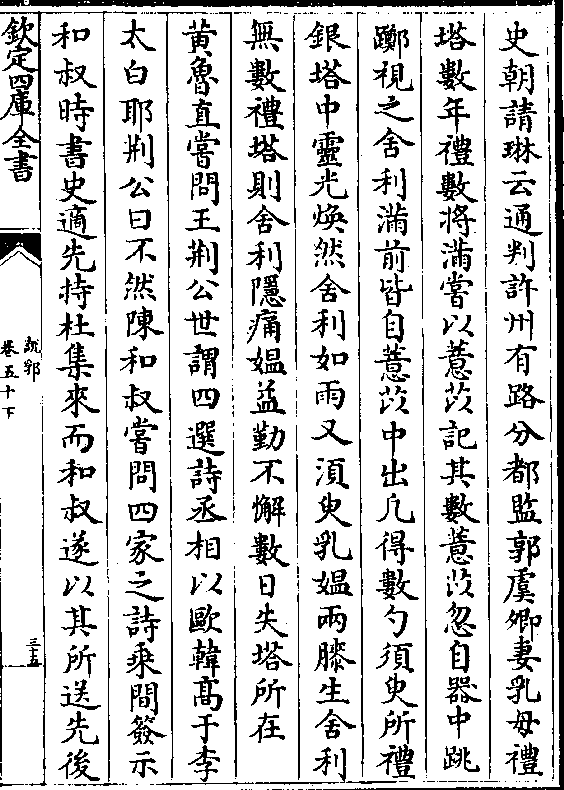 史朝請琳云通判許州有路分都監郭虞卿妻乳母禮
塔數年禮數將滿嘗以薏苡記其數薏苡忽自器中跳
躑視之舍利滿前皆自薏苡中出凡得數勺須臾所禮
銀塔中靈光煥然舍利如雨又湏臾乳媼兩膝生舍利
無數禮塔則舍利隱痛媼益勤不懈數日失塔所在
黄魯直嘗問王荆公世謂四選詩丞相以歐韓髙于李
太白耶荆公曰不然陳和叔嘗問四家之詩乗間簽示
和叔時書史適先持杜集來而和叔遂以其所送先後
欽定四庫全書
說郛
卷五十下
三十五